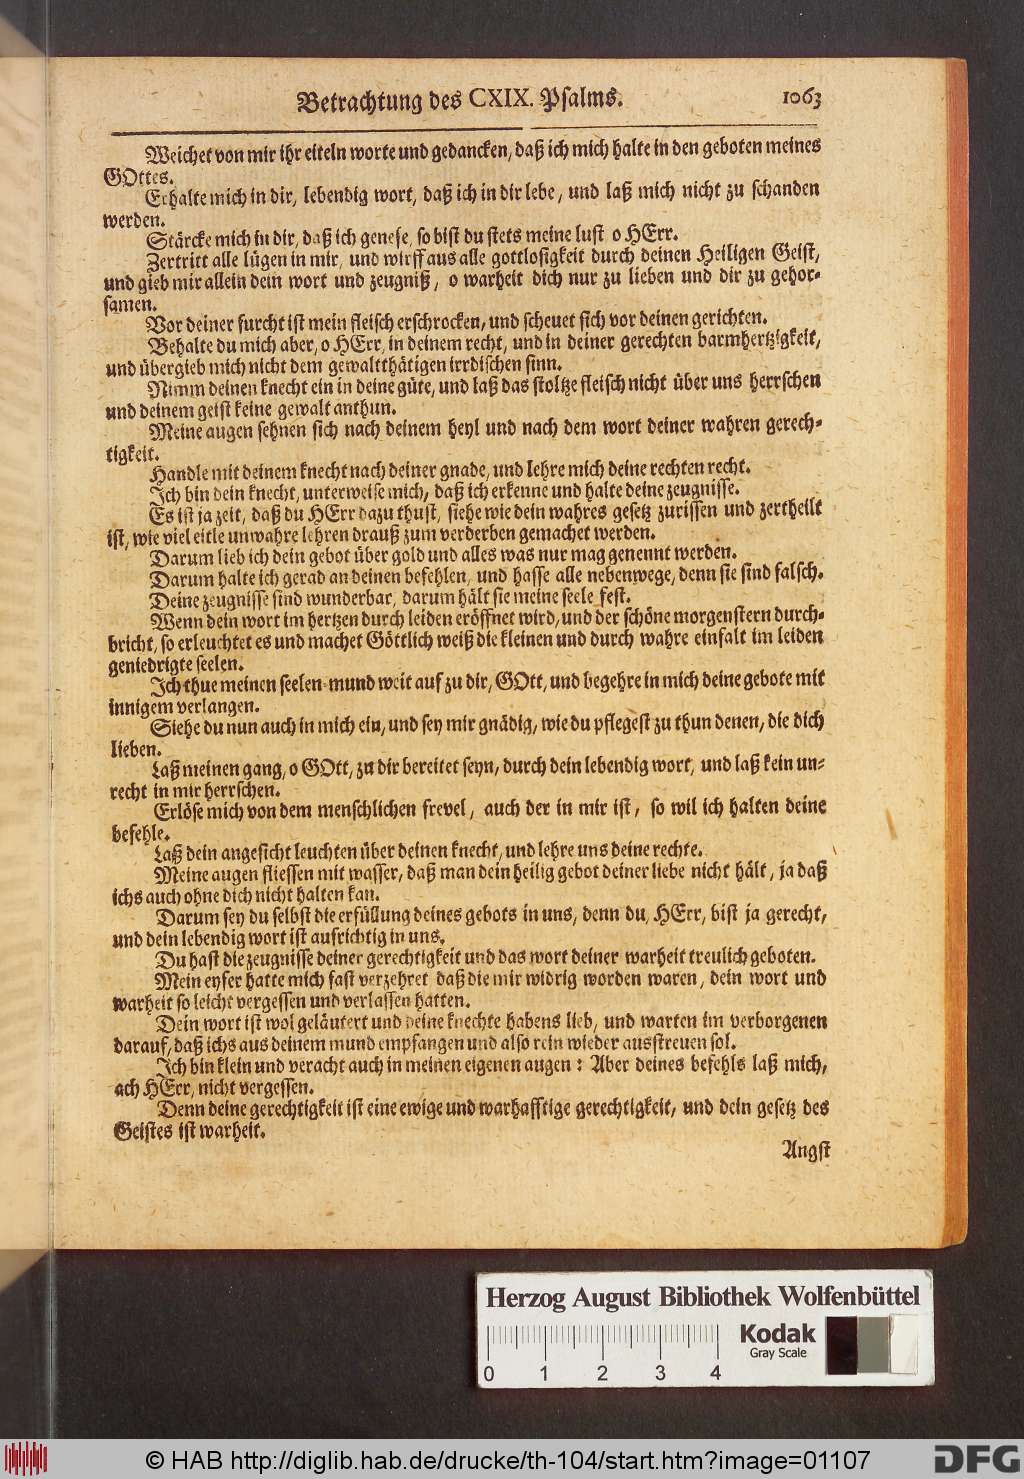 Betrachtung des CXIX. Psalms. 1063
Weichet von mir ihr eiteln worte und gedancken, daß ich mich halte in den geboten meines
GOttes.
Erhalte mich in dir, lebendig wort, daß ich in dir lebe, und laß mich nicht zu schanden
werden.
Stärcke mich in dir, daß ich genese, so bist du stets meine lust o HErr.
Zertritt alle lügen in mir, und wirff aus alle gottlosigkeit durch deinen Heiligen Geist,
und gieb mir allein dein wort und zeugniß, o warheit dich nur zu lieben und dir zu gehor-
samen.
Vor deiner furcht ist mein fleisch erschrocken, und scheuet sich vor deinen gerichten.
Behalte du mich aber, o HErr, in deinem recht, und in deiner gerechten barmhertzigkeit,
und übergieb mich nicht dem gewaltthätigen irrdischen sinn.
Nimm deinen knecht ein in deine güte, und laß das stoltze fleisch nicht über uns herrschen
und deinem geist keine gewalt anthun.
Meine augen sehnen sich nach deinem heyl und nach dem wort deiner wahren gerech-
tigkeit.
Handle mit deinem knecht nach deiner gnade, und lehre mich deine rechten recht.
Ich bin dein knecht, unterweise mich, daß ich erkenne und halte deine zeugnisse.
Es ist ja zeit, daß du HErr dazu thust, siehe wie dein wahres gesetz zurissen und zertheilt
ist, wie viel eitle unwahre lehren drauß zum verderben gemachet werden.
Darum lieb ich dein gebot über gold und alles was nur mag genennt werden.
Darum halte ich gerad an deinen befehlen, und hasse alle nebenwege, denn sie sind falsch.
Deine zeugnisse sind wunderbar, darum hält sie meine seele fest.
Wenn dein wort im hertzen durch leiden eröffnet wird, und der schöne morgenstern durch-
bricht, so erleuchtet es und machet Göttlich weiß die kleinen und durch wahre einfalt im leiden
geniedrigte seelen.
Ich thue meinen seelen-mund weit auf zu dir, GOtt, und begehre in mich deine gebote mit
innigem verlangen.
Siehe du nun auch in mich ein, und sey mir gnädig, wie du pflegest zu thun denen, die dich
lieben.
Laß meinen gang, o GOtt, zu dir bereitet seyn, durch dein lebendig wort, und laß kein un-
recht in mir herrschen.
Erlöse mich von dem menschlichen frevel, auch der in mir ist, so wil ich halten deine
befehle.
Laß dein angesicht leuchten über deinen knecht, und lehre uns deine rechte.
Meine augen fliessen mit wasser, daß man dein heilig gebot deiner liebe nicht hält, ja daß
ichs auch ohne dich nicht halten kan.
Darum sey du selbst die erfüllung deines gebots in uns, denn du, HErr, bist ja gerecht,
und dein lebendig wort ist aufrichtig in uns.
Du hast die zeugnisse deiner gerechtigkeit und das wort deiner warheit treulich geboten.
Mein eyfer hatte mich fast verzehret daß die mir widrig worden waren, dein wort und
warheit so leicht vergessen und verlassen hatten.
Dein wort ist wol geläutert und deine knechte habens lieb, und warten im verborgenen
darauf, daß ichs aus deinem mund empfangen und also rein wieder ausstreuen sol.
Ich bin klein und veracht auch in meinen eigenen augen: Aber deines befehls laß mich,
ach HErr, nicht vergessen.
Denn deine gerechtigkeit ist eine ewige und warhafftige gerechtigkeit, und dein gesetz des
Geistes ist warheit.
Angst
Herzog August Bibliothek Wolfenbüttel
Kodak
Gray Scale
0 1 2 3 4
© HAB http://diglib.hab.de/drucke/th-104/start.htm?image=01107
DFG